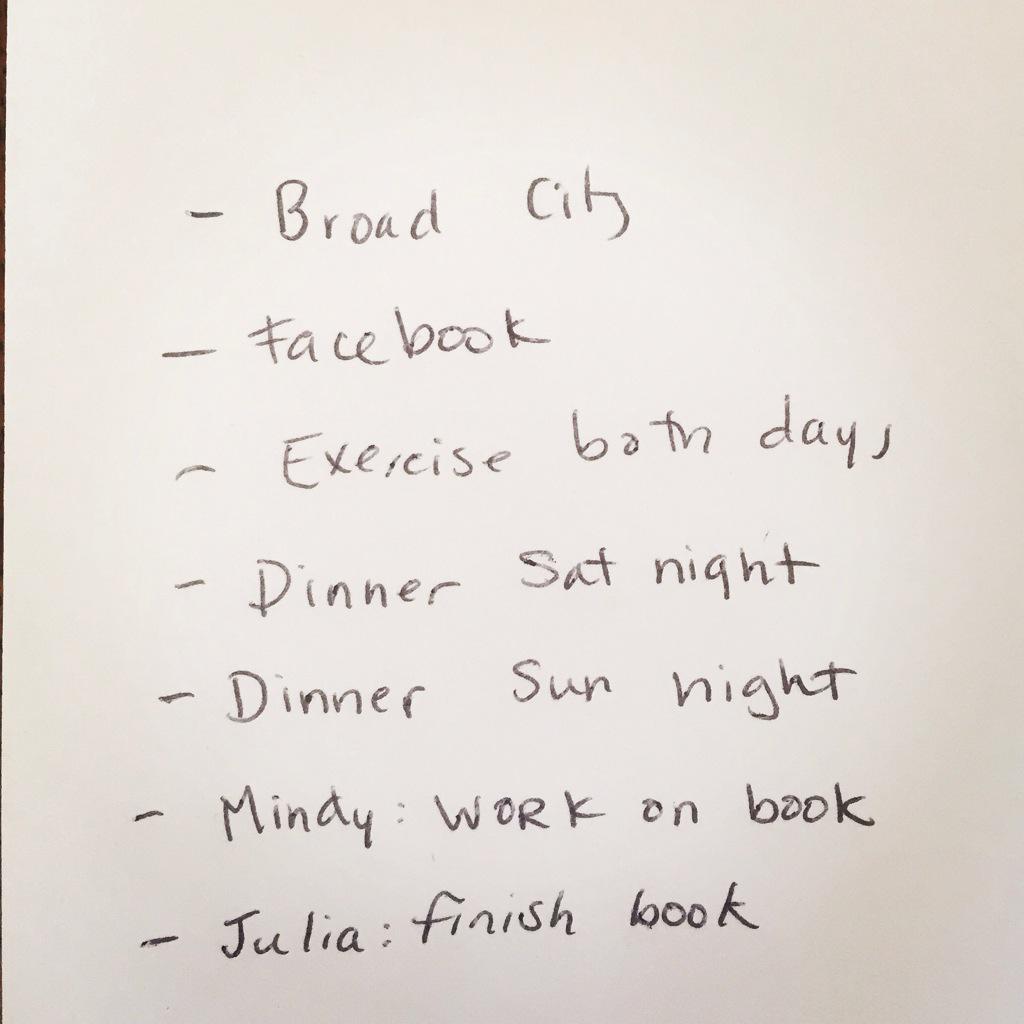 - Broad City
- Facebook
- Exercise both days
- Dinner Sat night
- Dinner Sun night
- Mindy: WORK on book
- Julia: finish book